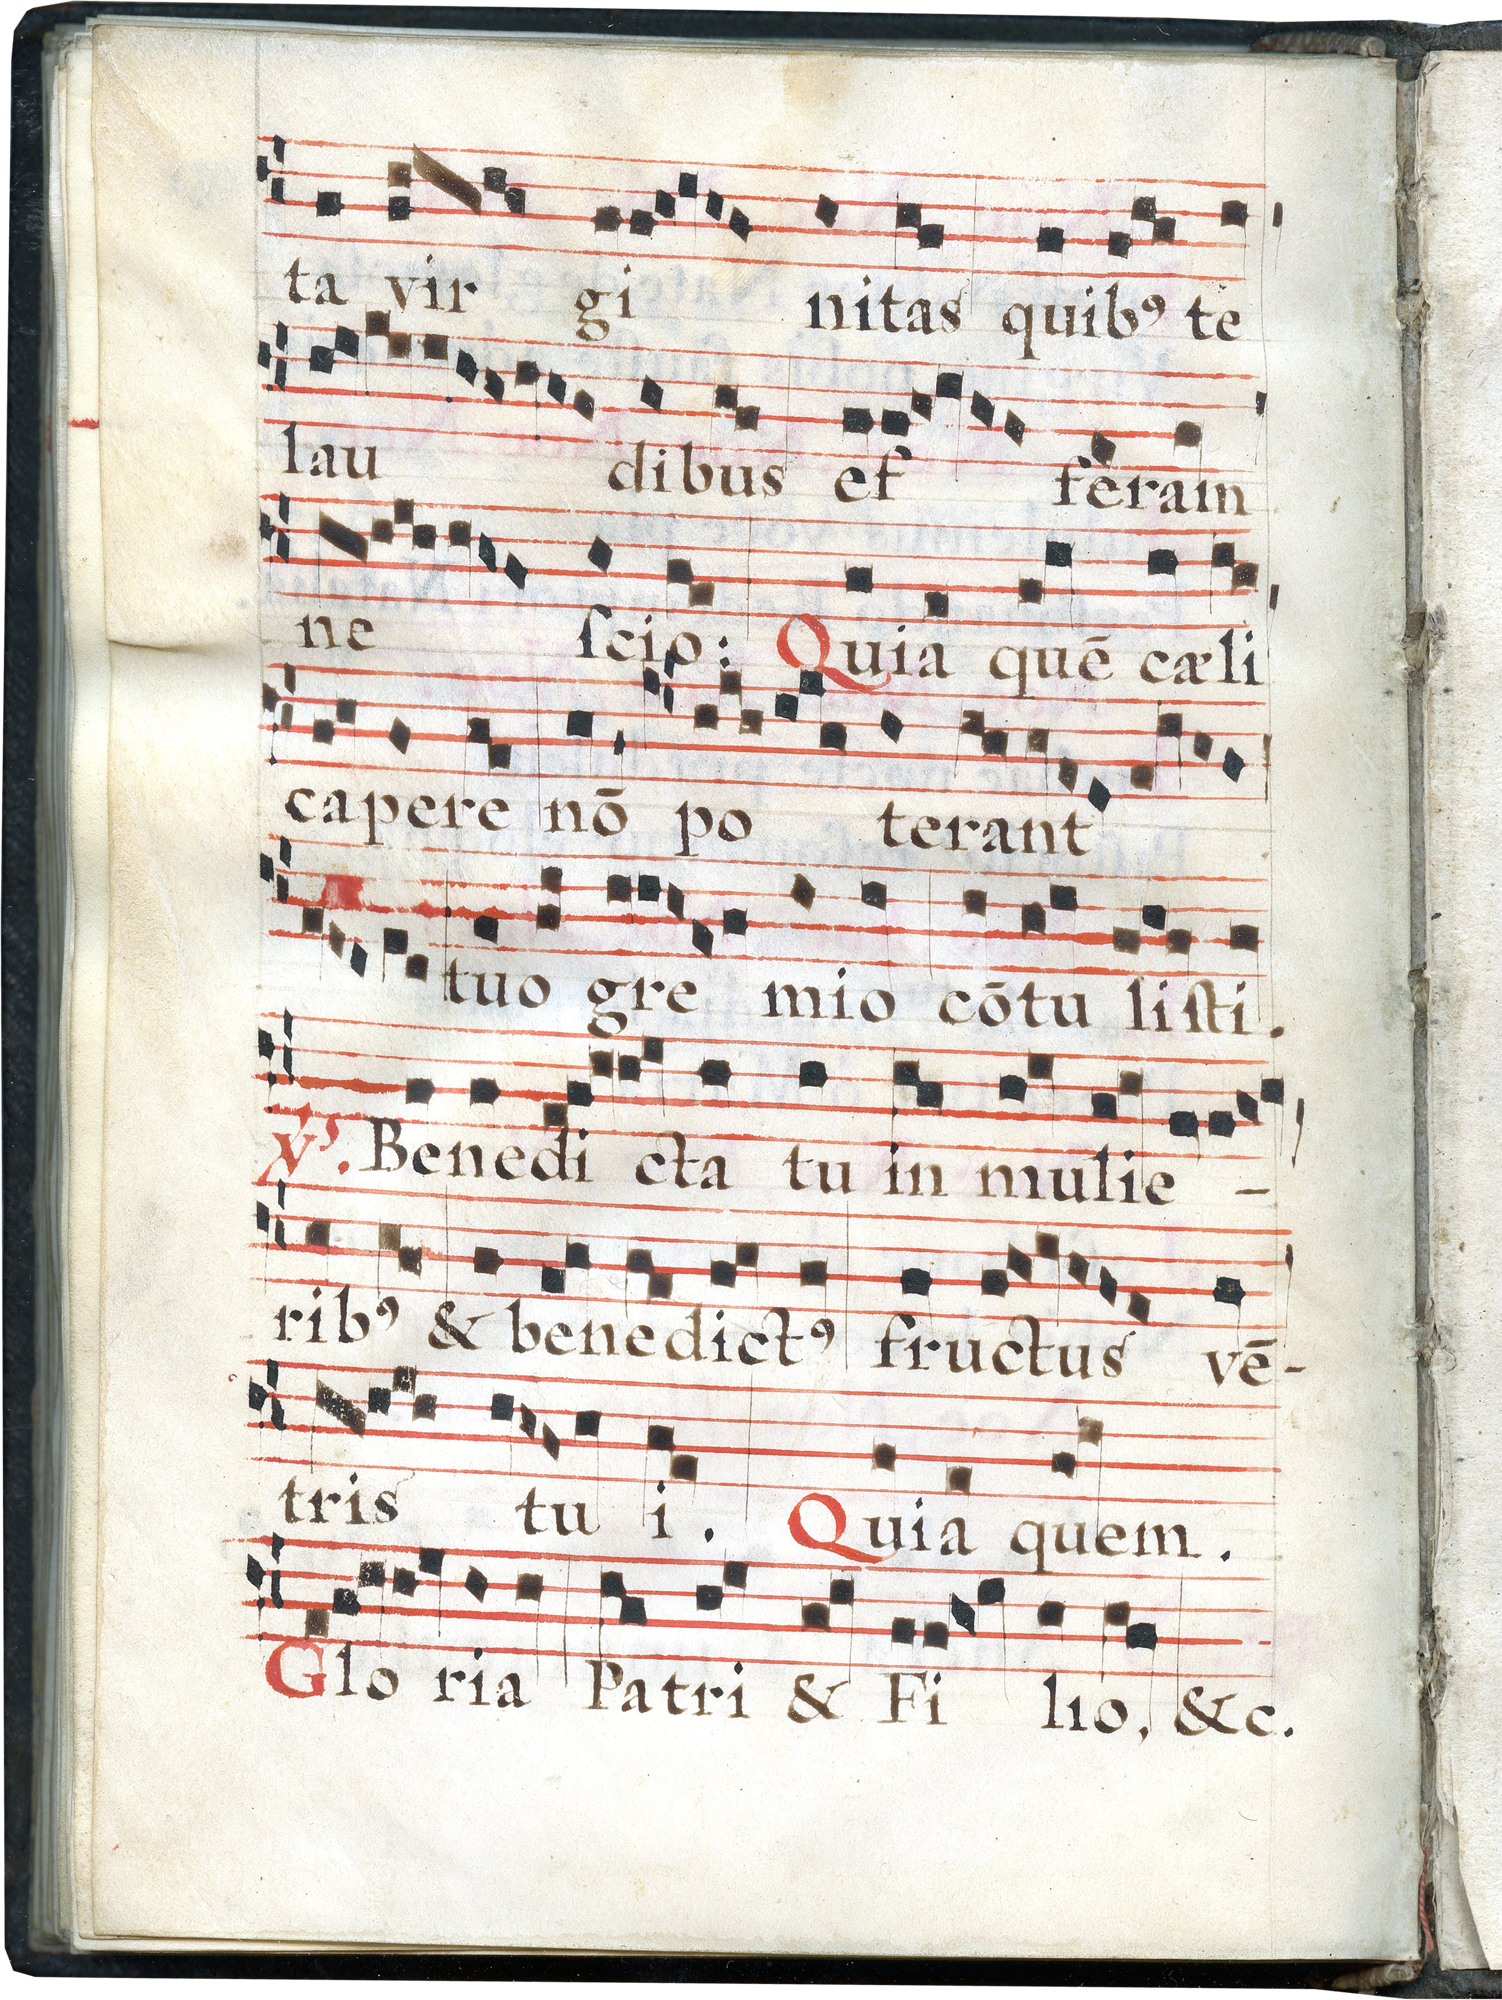 ta vir gi nitas quibꝰ te
lau dibus ef feram
ne ſcio: Quia quē cæli
capere nō po terant
tuo gre mio cōtu liſti.
℣. Benedi cta tu in mulie -
ribꝰ & benedictꝰ fructus vē-
tris tu i. Quia quem.
Glo ria Patri & Fi lio, &c.